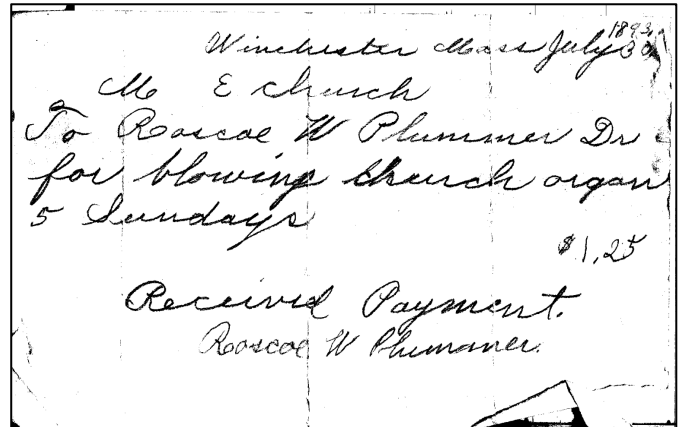 1893
Winchester Mass July 30
M E church
To Roscoe W Plummer Dr
for blowing church organ
5 Sundays
$1,25
Received Payment.
Roscoe W Plummer.